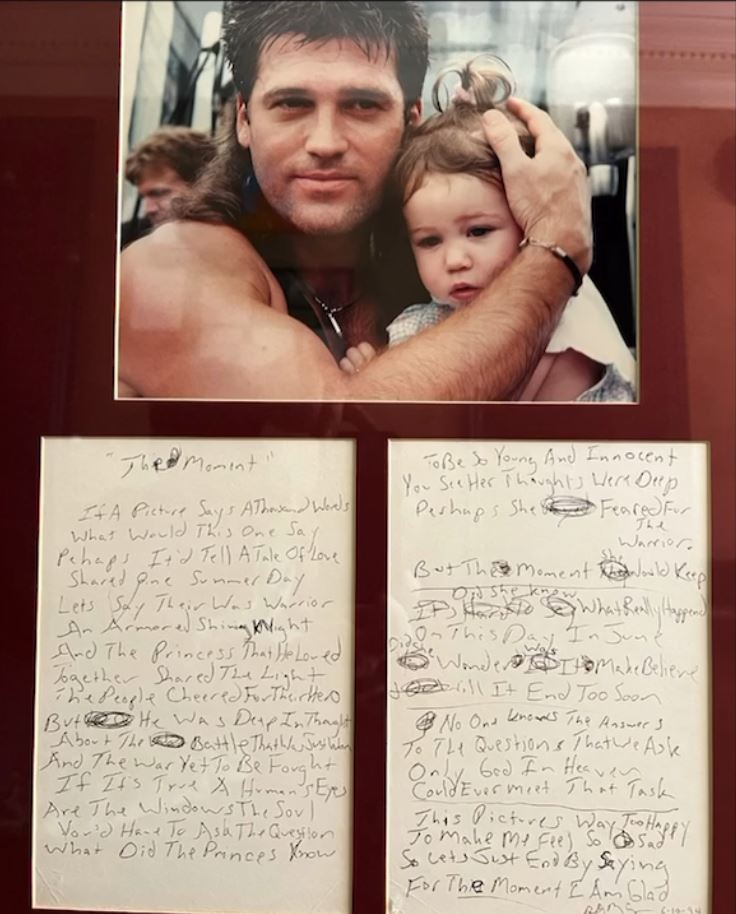 "The Moment"
If A Picture Says A Thousand Words
What Would This One Say
Pehaps It'd Tell A Tale Of Love
Shared One Summer Day
Lets Say Their Was Warrior
An Armored Shining Knight
And The Princess That He Loved
Together Shared The Light
The People Cheered For Their Hero
But He Was Deep In Thought
About The Battle That Was Just
And The War Yet To Be Fought
If It's True A Human's Eyes
Are The Windows The Soul
You'd Have To Ask The Question
What Did The Princes Know
To Be So Young And Innocent
You See Her Thoughts Were Deep
Perhaps She Feared For
The
Warrior.
But The Moment She Would Keep
Did She know
What Really Happend
On This Day In June
Did she Wonder was It Make Believe
Will It End Too Soon
No One knows The Answers
To The Questions That We Ask
Only God In Heaven
Could Ever Meet That Task
This Pictures Way Too Happy
To Make Me Feel So Sad
So Lets Just End By Saying
For The Moment I Am Glad